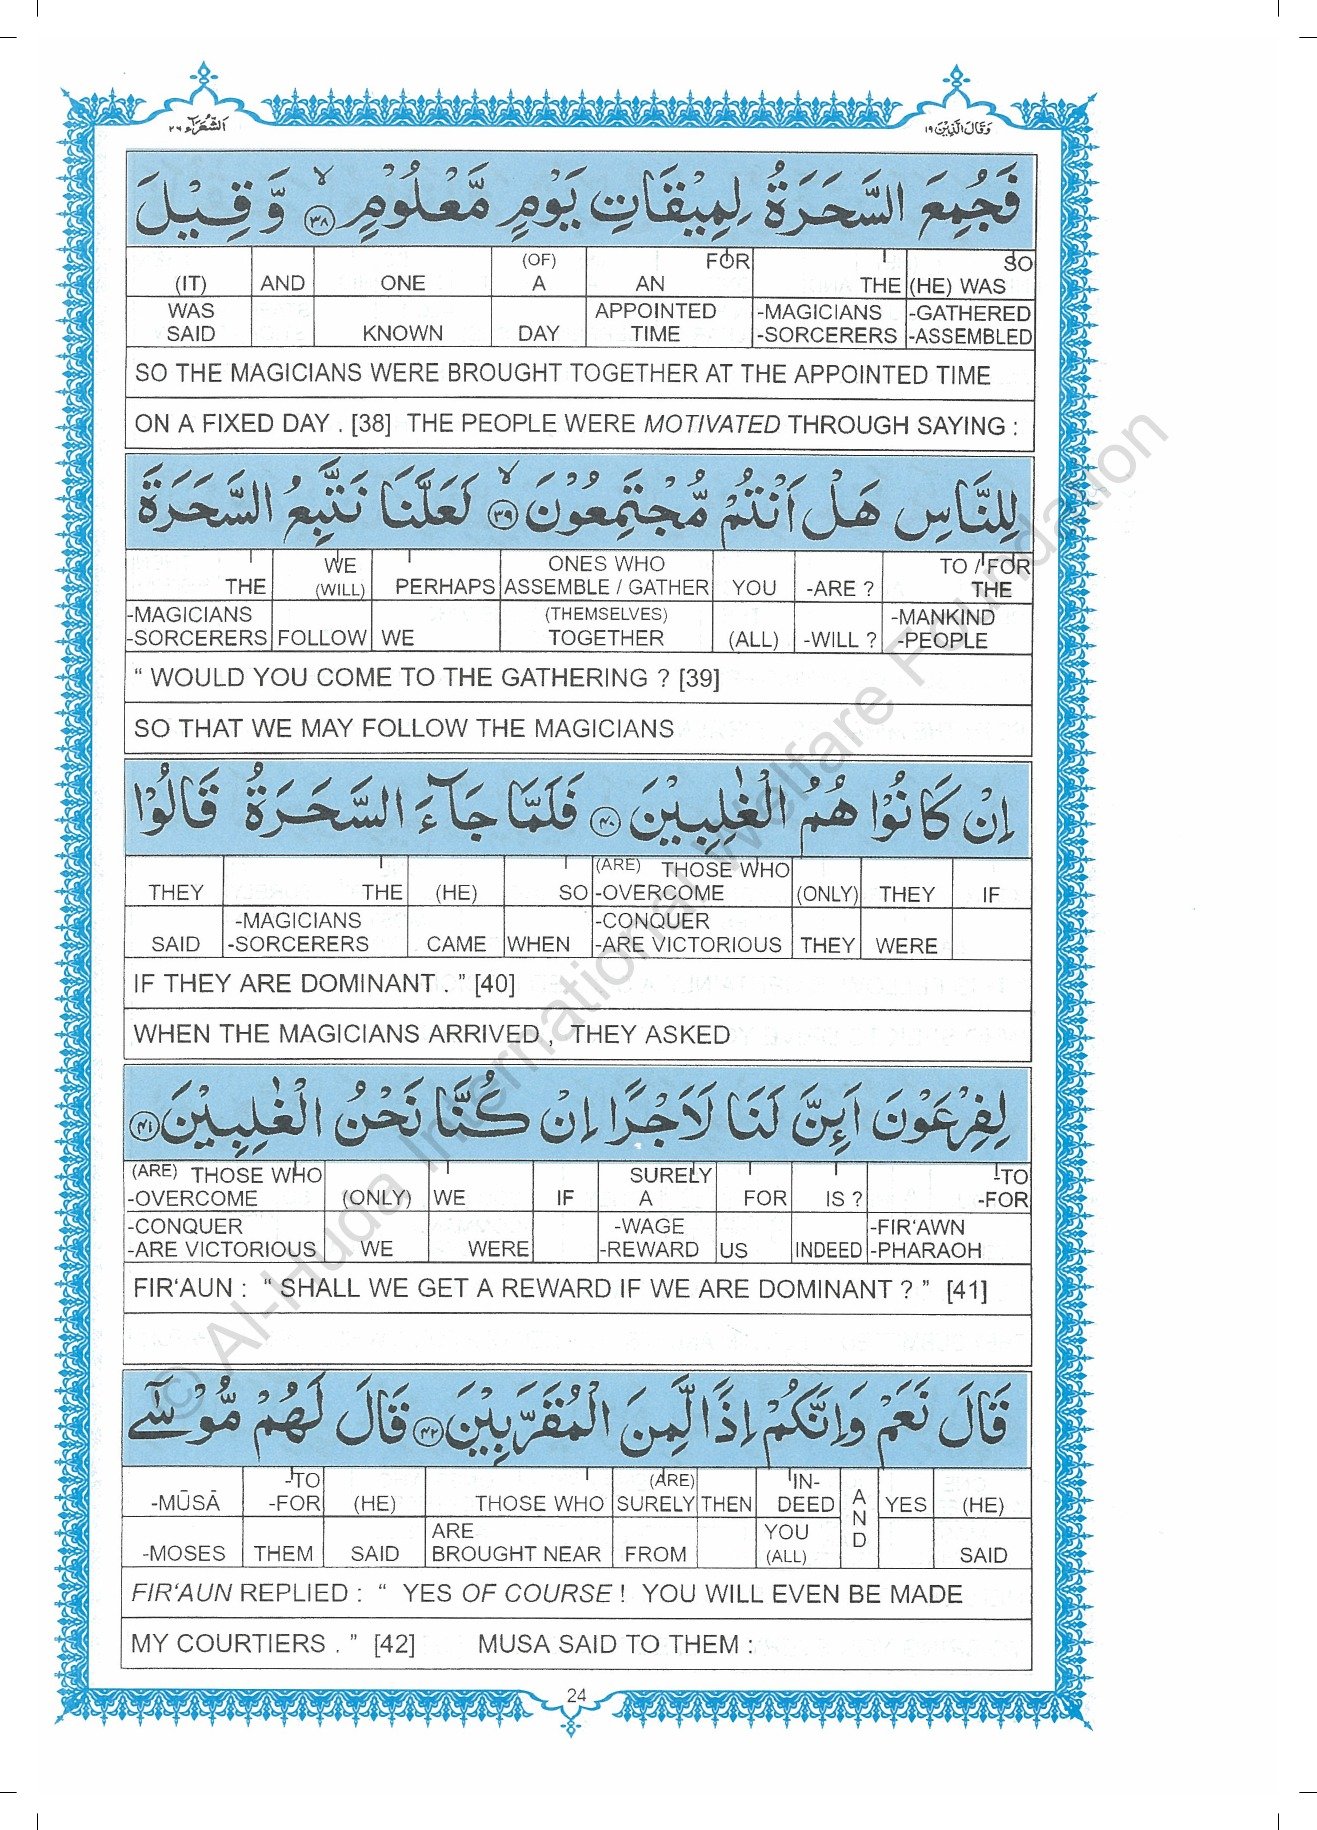 الشُّعَرَآء ٢٦
وَقَالَ الَّذِيْنَ ١٩
فَجُمِعَ السَّحَرَةُ لِمِيْقَاتِ يَوْمٍ مَّعْلُوْمٍ ۙ﴿٣٨﴾ وَّقِيْلَ
(IT) AND ONE (OF) A AN FOR THE SO (HE) WAS
WAS SAID KNOWN DAY APPOINTED TIME -MAGICIANS -SORCERERS -GATHERED -ASSEMBLED
SO THE MAGICIANS WERE BROUGHT TOGETHER AT THE APPOINTED TIME
ON A FIXED DAY . [38] THE PEOPLE WERE MOTIVATED THROUGH SAYING :
لِلنَّاسِ هَلْ اَنْتُمْ مُّجْتَمِعُوْنَ ۙ﴿٣٩﴾ لَعَلَّنَا نَتَّبِعُ السَّحَرَةَ
THE WE (WILL) PERHAPS ONES WHO ASSEMBLE / GATHER YOU -ARE ? TO / FOR THE
-MAGICIANS -SORCERERS FOLLOW WE (THEMSELVES) TOGETHER (ALL) -WILL ? -MANKIND -PEOPLE
“ WOULD YOU COME TO THE GATHERING ? [39]
SO THAT WE MAY FOLLOW THE MAGICIANS
اِنْ كَانُوْا هُمُ الْغٰلِبِيْنَ ﴿٤٠﴾ فَلَمَّا جَآءَ السَّحَرَةُ قَالُوْا
THEY THE (HE) SO (ARE) THOSE WHO -OVERCOME (ONLY) THEY IF
SAID -MAGICIANS -SORCERERS CAME WHEN -CONQUER -ARE VICTORIOUS THEY WERE
IF THEY ARE DOMINANT . ” [40]
WHEN THE MAGICIANS ARRIVED , THEY ASKED
لِفِرْعَوْنَ اَئِنَّ لَنَا لَاَجْرًا اِنْ كُنَّا نَحْنُ الْغٰلِبِيْنَ ﴿٤١﴾
(ARE) THOSE WHO -OVERCOME (ONLY) WE IF SURELY A FOR IS ? -TO -FOR
-CONQUER -ARE VICTORIOUS WE WERE -WAGE -REWARD US INDEED -FIR‘AWN -PHARAOH
FIR‘AUN : “ SHALL WE GET A REWARD IF WE ARE DOMINANT ? ” [41]
قَالَ نَعَمْ وَاِنَّكُمْ اِذًا لَّمِنَ الْمُقَرَّبِيْنَ ﴿٤٢﴾ قَالَ لَهُمْ مُّوْسٰٓى
-MŪSĀ -TO -FOR (HE) THOSE WHO (ARE) SURELY THEN IN- DEED AND YES (HE)
-MOSES THEM SAID ARE BROUGHT NEAR FROM YOU (ALL) SAID
FIR‘AUN REPLIED : “ YES OF COURSE ! YOU WILL EVEN BE MADE
MY COURTIERS . ” [42] MUSA SAID TO THEM :
24
© Al-Huda International Welfare Foundation